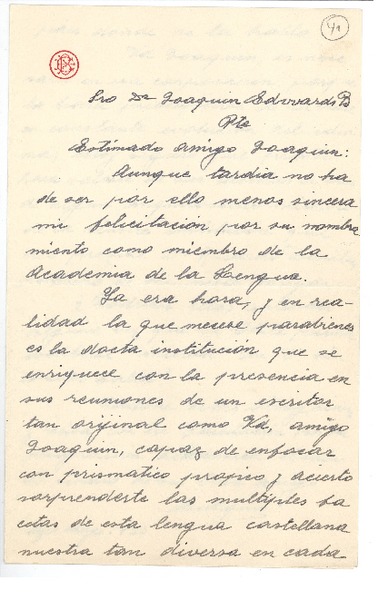 41
Sro Dn Joaquin Edwards B
Pte
Estimado amigo Joaquin:
Aunque tardia no ha
de ser por ello menos sincera
mi felicitación por su nombra
miento como miembro de la
Academia de la Lengua.
Ya era hora, y en rea-
lidad la que merece parabienes
es la docta institución que se
enriquece con la presencia en
sus reuniones de un escritor
tan orijinal como Ud, amigo
Joaquin, capaz de enfocar
con prismatico propio y acierto
sorprendente las multiples fa
cetas de esta lengua castellana
nuestra tan diversa en cada